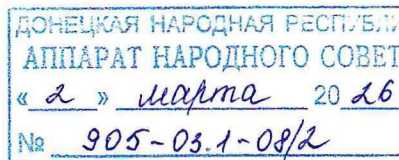 ДОНЕЦКАЯ НАРОДНАЯ РЕСПУБЛИ
АППАРАТ НАРОДНОГО СОВЕТ
« 2 » марта 20 26
№ 905-03.1-08/2